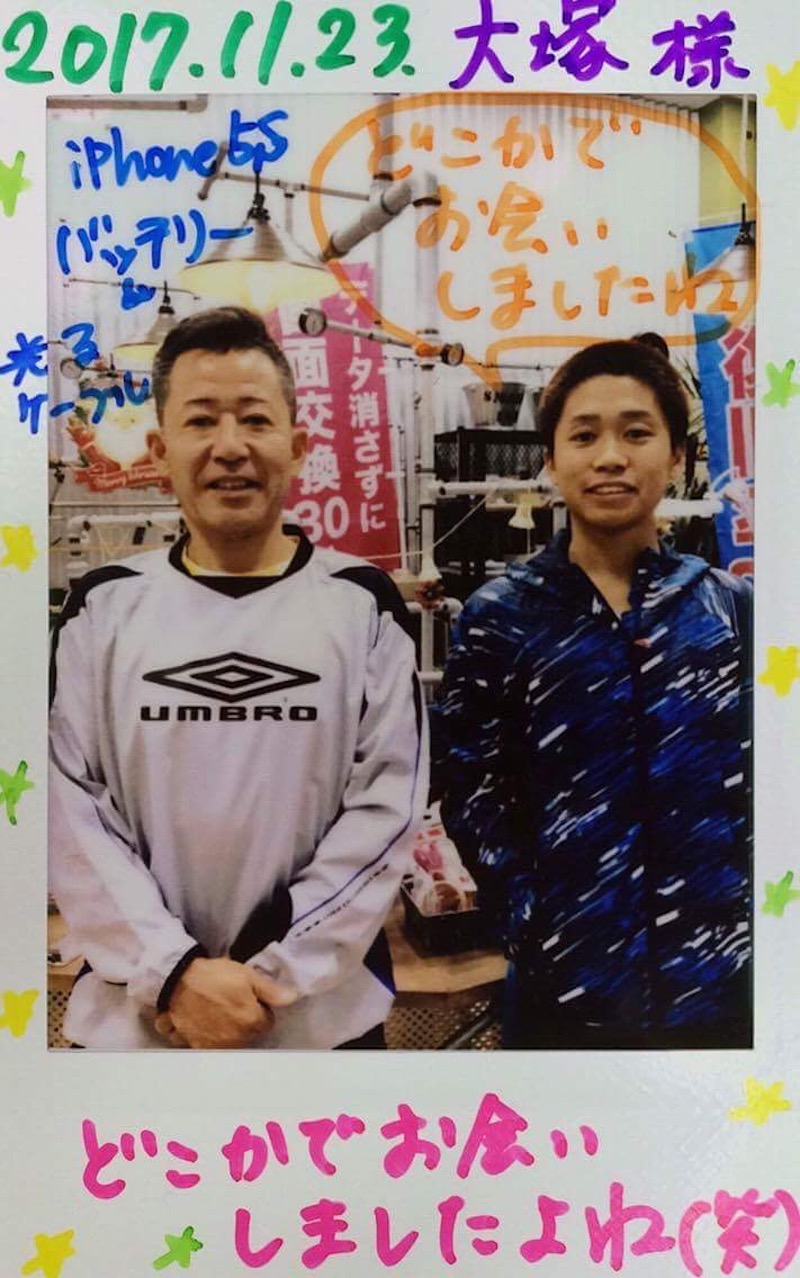 2017.11.23. 大塚 様
iPhone 5S
バッテリー
&
光る
ケーブル
どこかで
お会い
しましたね
データ消さずに
画面交換30
UMBRO
どこかでお会い
しましたよね(笑)